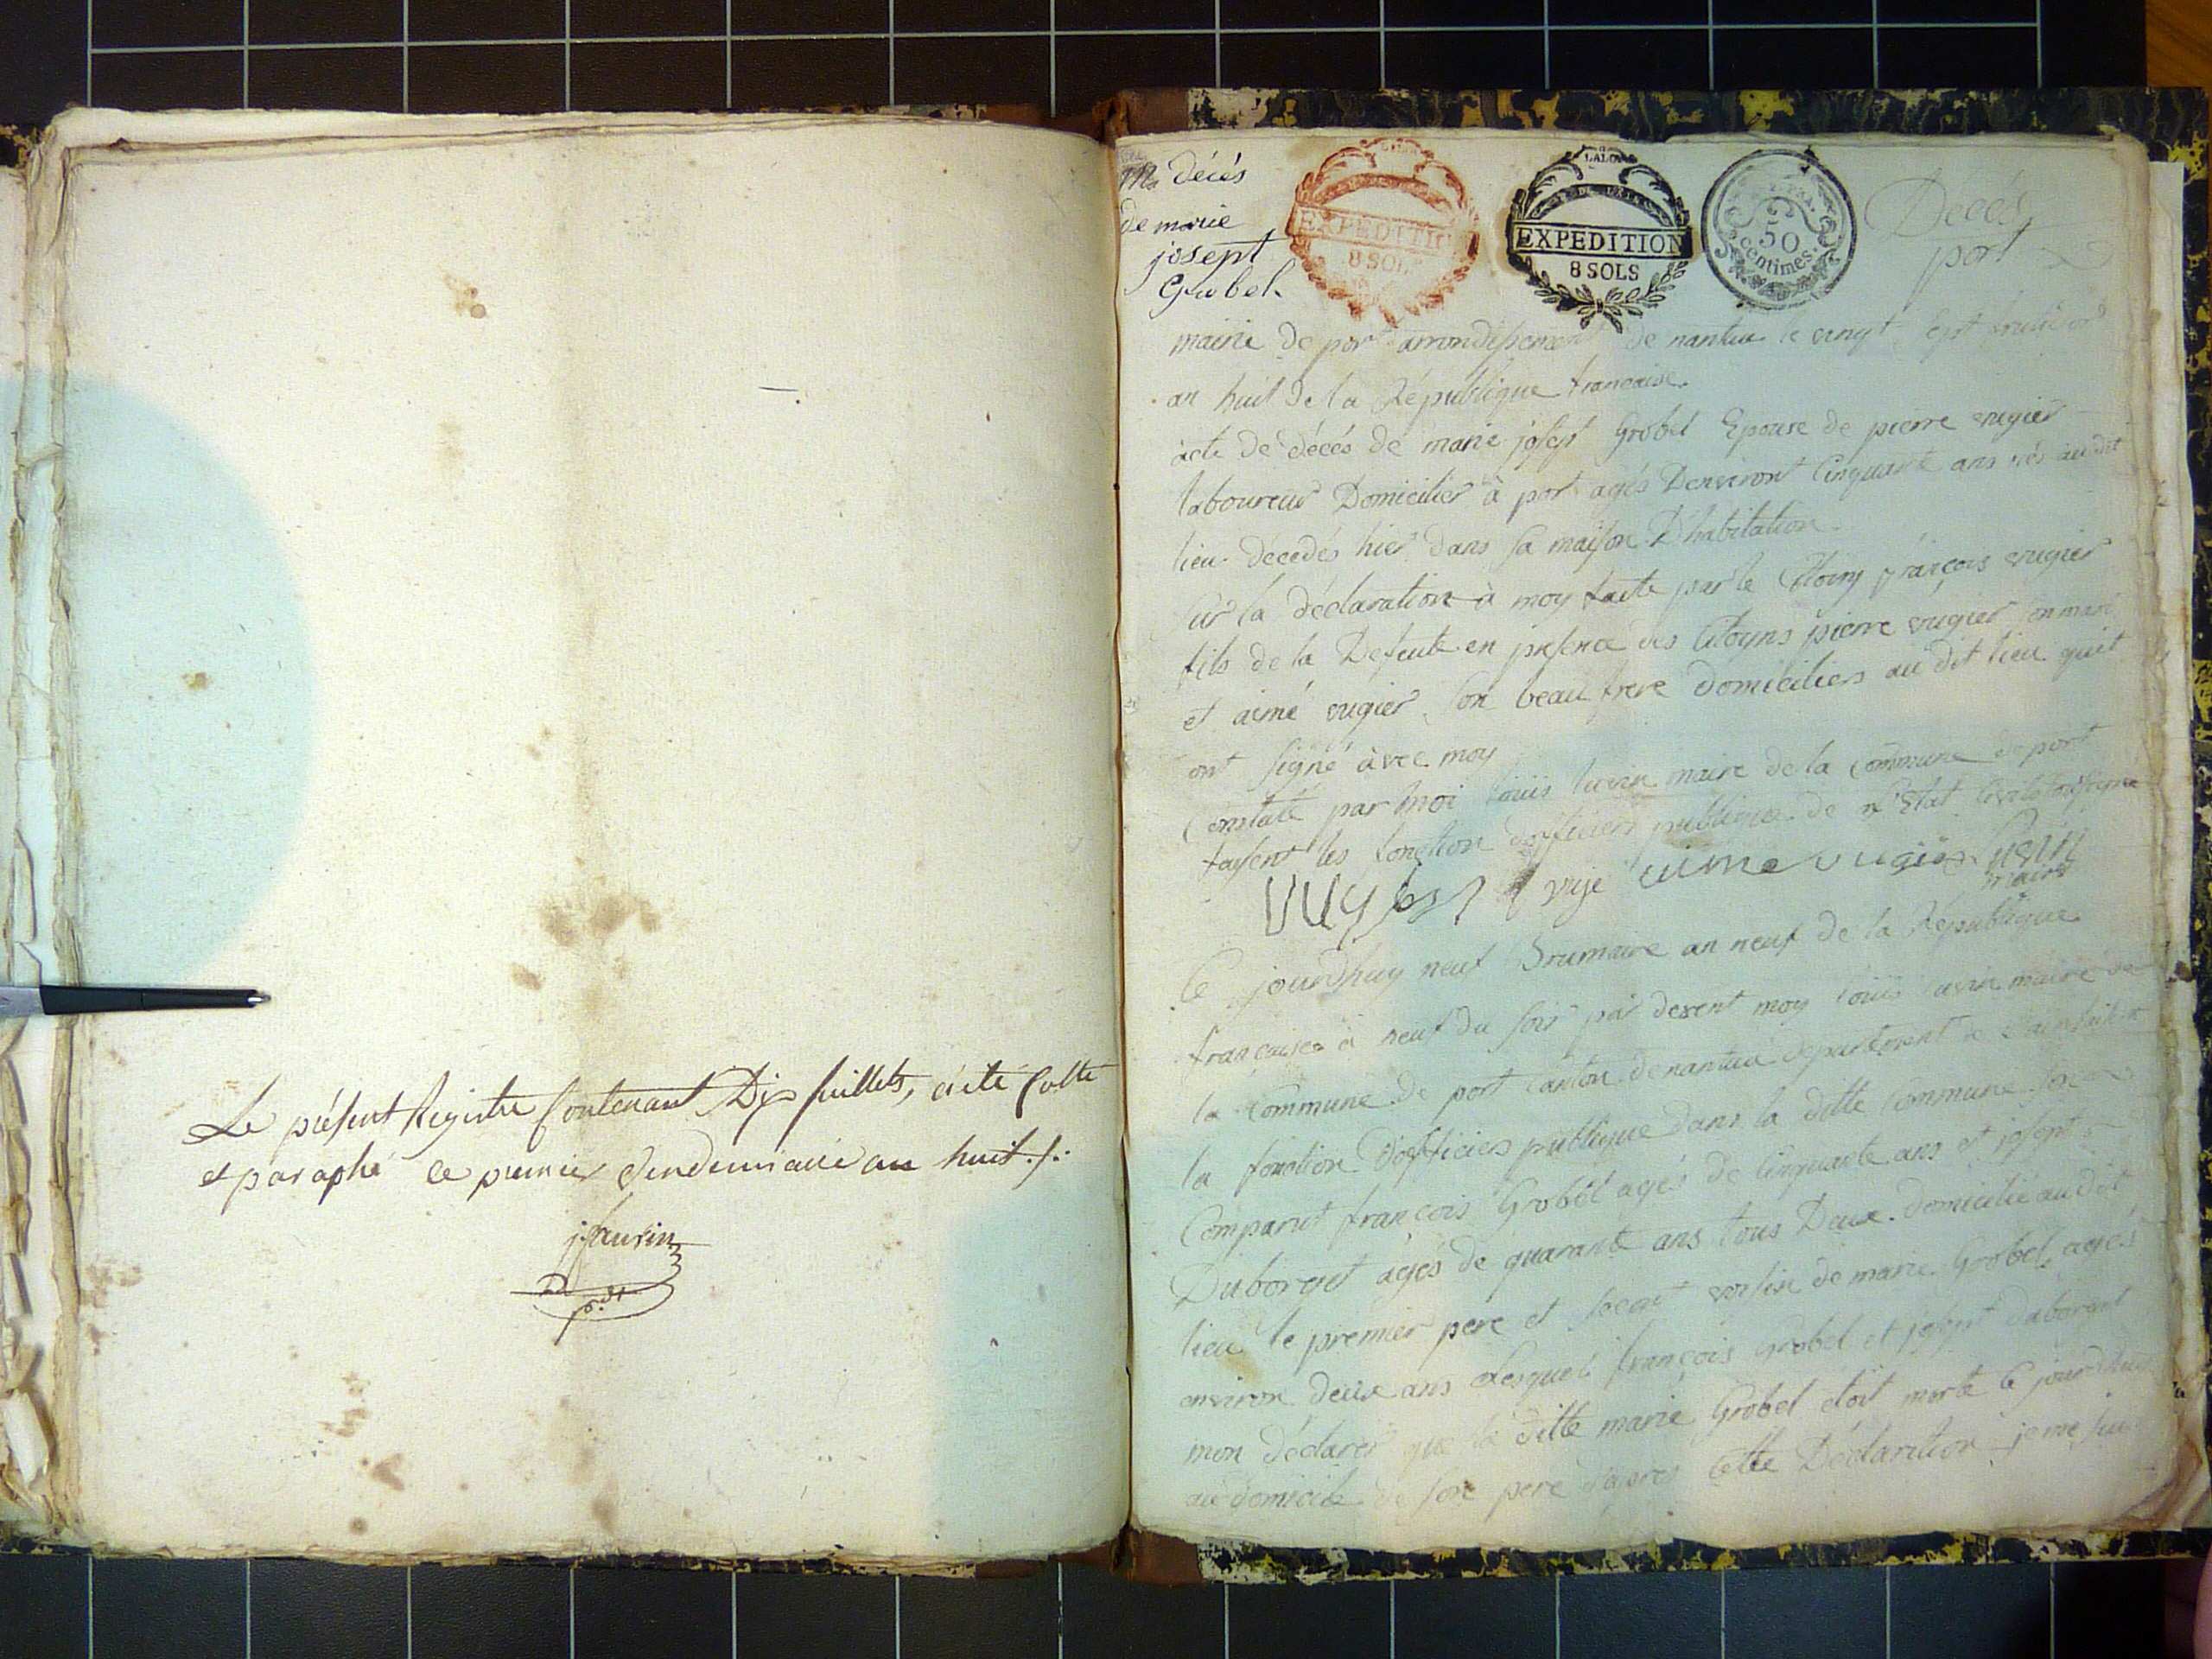 Le présent Registre Contenant Dix feuillets, a été Cotté
et paraphé le premier Vendemiaire an huit ./.
décés
de marie
josept
Grobel
EXPEDITION
8 SOLS
LA LOI
EXPEDITION
8 SOLS
50
centimes.
Décés
port
mairie de port arrondissement de nantua le vingt sept
an huit de la République francaise.
acte de décés de marie josept Grobel Epouse de pierre vugier
laboureur Domicilier à port agés Denviront Cinquante ans nés au dit
lieu décedés hier dans sa maison D'habitation
sur la déclaration à moy faite par le Citoiny françois vugier
fils de la Defeute en presence des Citoyns pierre vugier son mari
et aimé vugier son beau frere domiciliers au dit lieu quit
ont signé àvec moy
Constaté par moi louis maire de la commune de port
faisent les fonction d'officiers publique de l'Etat
aime vugier
maire
Ce jourdhuy neuf Brumaire an neuf de la République
française à neuf du soir par devent moy louis maire de
la Commune de port canton de nantua département de l'ain
la fonction D'officier publique dans la ditte commune
Comparut françois Grobel agés de cinquante ans et josept
Duborget agés de quarante ans tous Deux domicilié au dit
lieu le premier pere et secont voisin de marie Grobel, agés
environ deux ans lesquels françois Grobel et josept daborget
mon déclarer que la ditte marie Grobel étoit morte ce jourdhuy
au domicile de son pere d'apres cette Déclaration je me suis